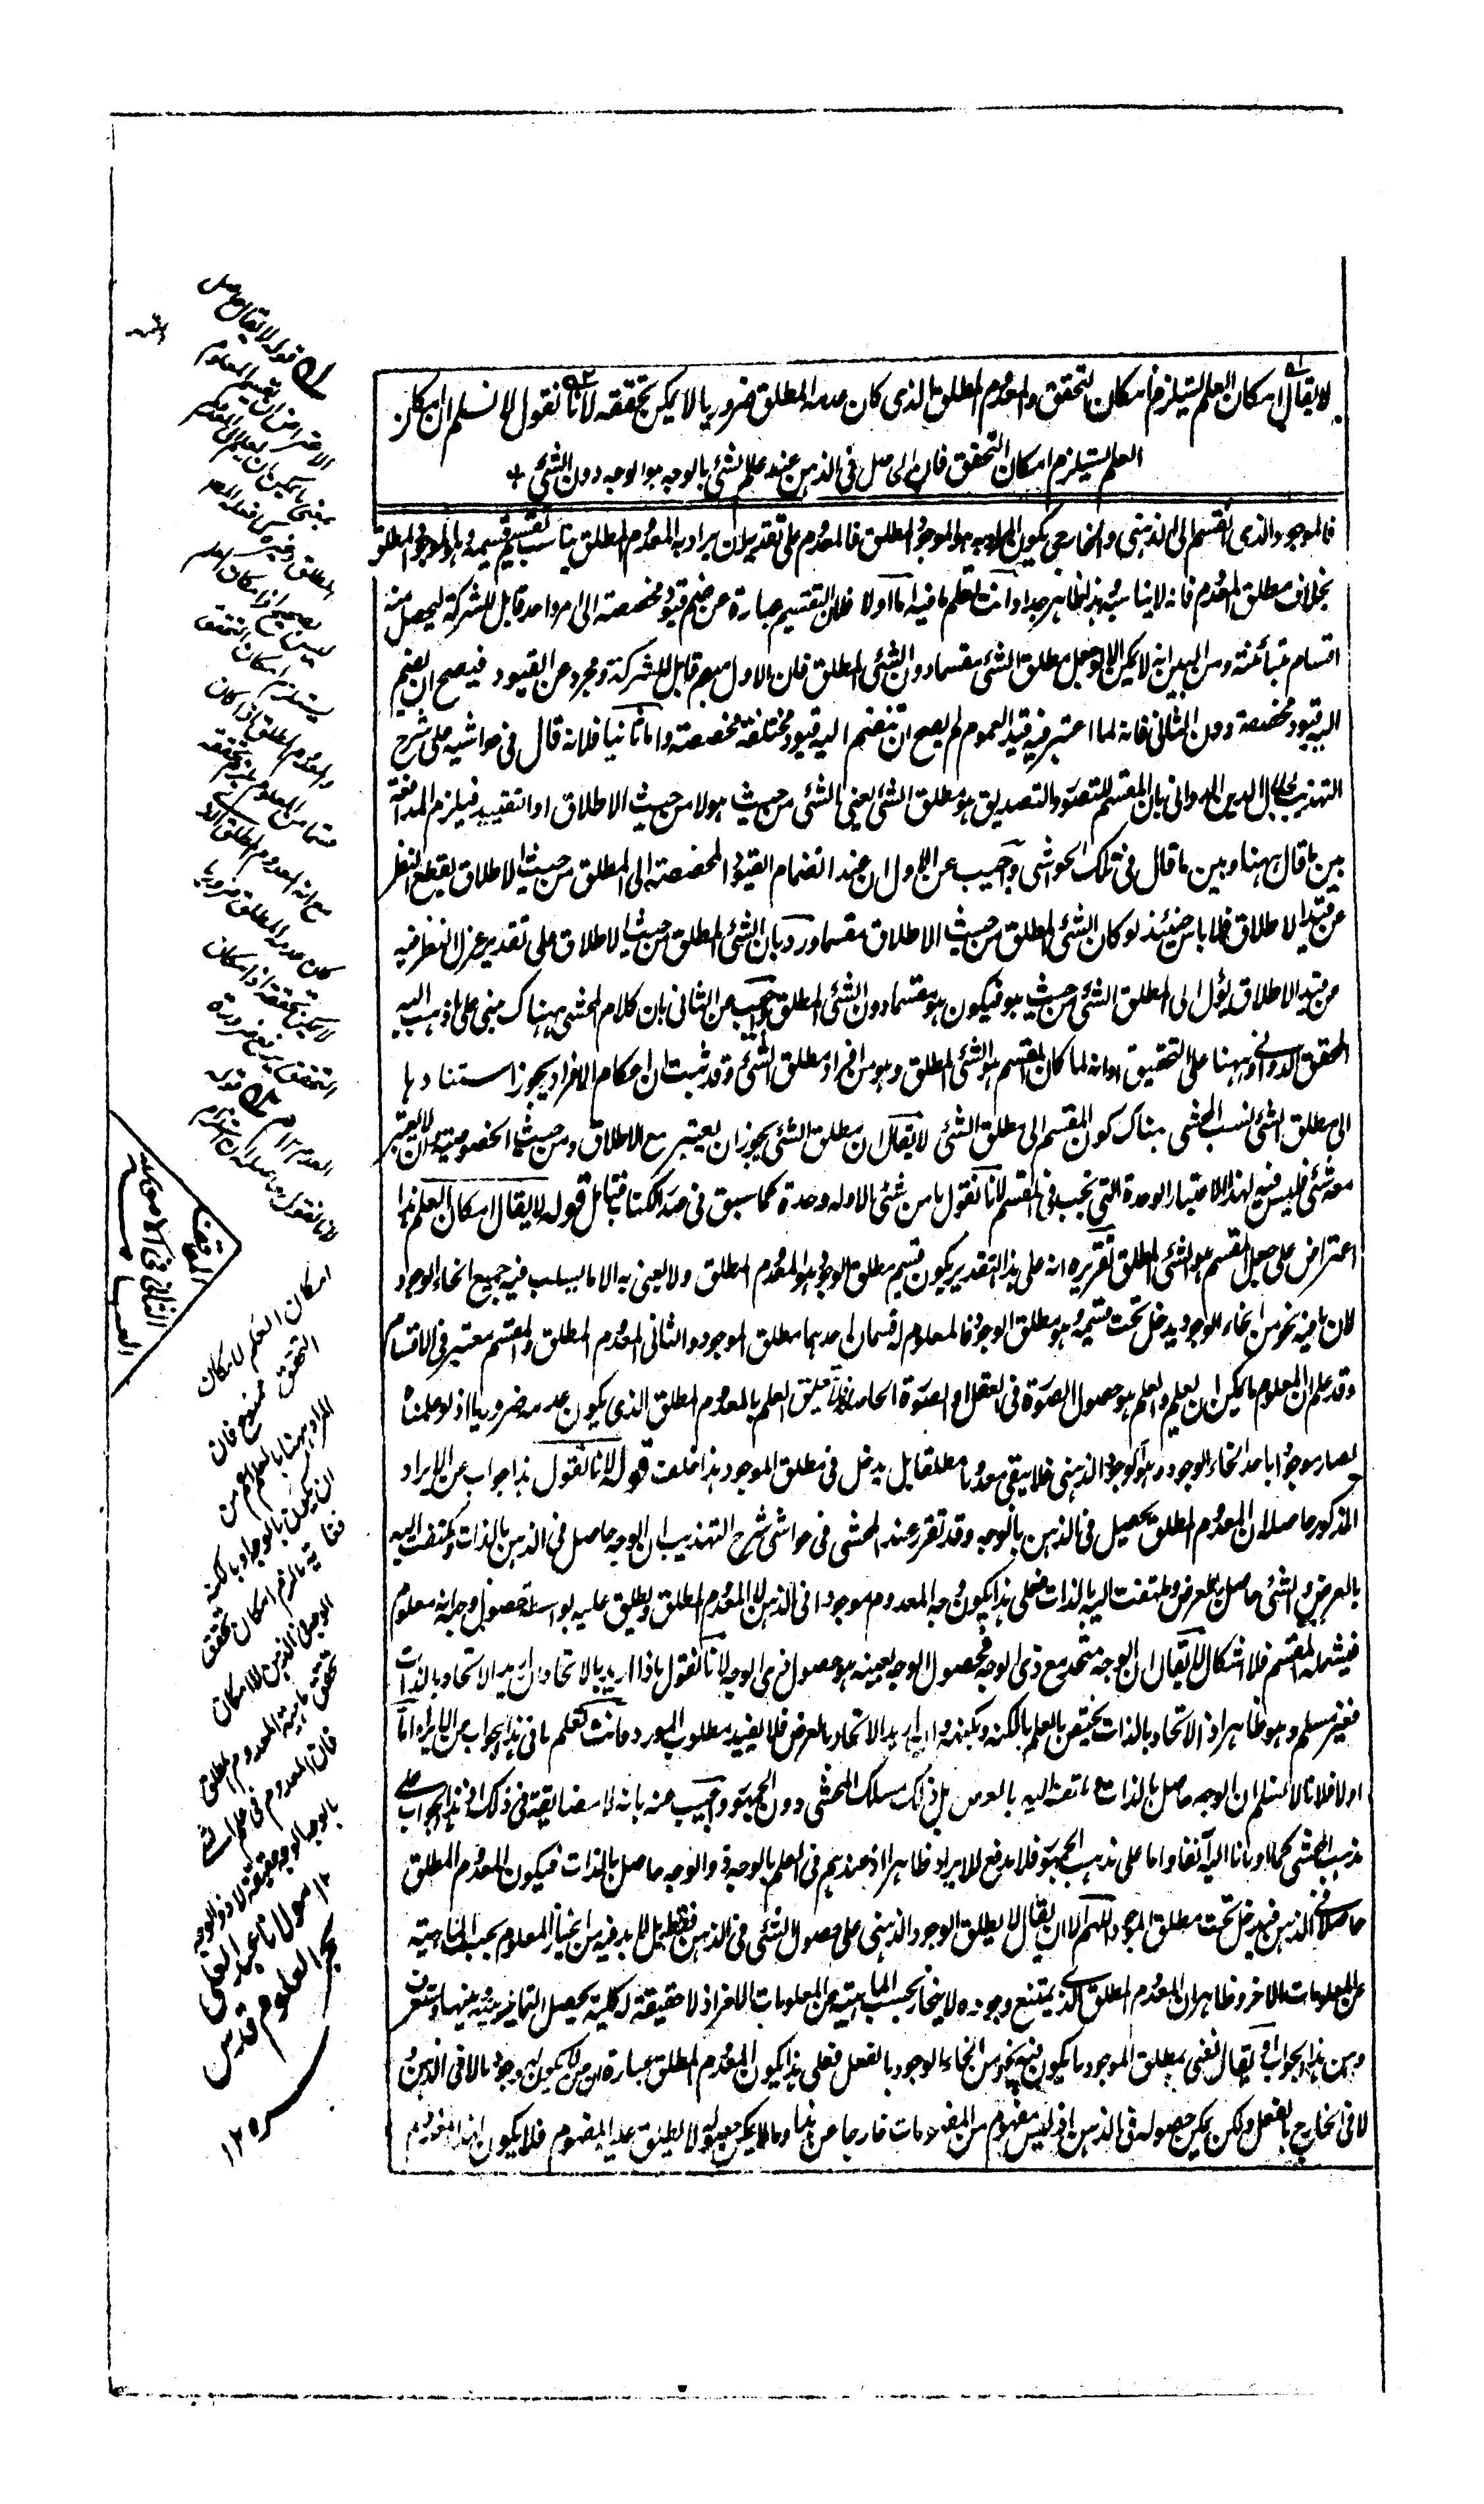 لا يقال امكان العلم يستلزم امكان التحقق والمعدوم المطلق الذي كان عدمه المطلق ضروريا لا يمكن تحققه لانا نقول لا نسلم ان امكان
العلم يستلزم امكان التحقق فان الحاصل في الذهن عند علم الشئ بالوجه هو الوجه دون الشئ +
فالموجود الذي ينقسم الى الذهني والخارجي يكون المراد به هو الموجود المطلق فالمعدوم على تقدير ان يراد به المعدوم المطلق يناسب تقسيم قسيمه وهو الموجود المطلق
بخلاف مطلق المعدوم فانه لا يناسبه هذا ظاهر جدا وانت تعلم ما فيه اما اولا فلان التقسيم عبارة عن ضم قيود مخصصة الى امر واحد قابل للشركة ليحصل منه
اقسام متبائنة ومن البين انه لا يمكن الا بجعل مطلق الشئ مقسما دون الشئ المطلق فان الاول مبهم قابل للشركة ومجرد عن القيود فيصح ان ينضم
اليه قيود مخصصة دون الثاني فانه لما اعتبر فيه قيد العموم لم يصح ان تنضم اليه قيود مختلفة مخصصة واما ثانيا فلانه قال في حواشيه على شرح
التهذيب لجلال الدين الدواني بان المقسم للتصور والتصديق هو مطلق الشئ يعني الشئ من حيث هو لا من حيث الاطلاق او التقييد فيلزم المدافعة
بين ما قال ههنا وبين ما قال في تلك الحواشي واجيب عن الاول ان عند انضمام القيود المخصصة الى المطلق من حيث الاطلاق يقطع النظر
عن قيد الاطلاق فلا باس حينئذ لو كان الشئ المطلق من حيث الاطلاق مقسما ورد بان الشئ المطلق من حيث الاطلاق على تقدير عزل النظر فيه
من قيد الاطلاق يؤل الى المطلق الشئ من حيث هو فيكون هو مقسما دون الشئ المطلق واجيب عن الثاني بان كلام المحشي هناك مبني على ما ذهب اليه
المحقق الدواني وههنا على التحقيق او انه لما كان المقسم هو الشئ المطلق وهو من افراد مطلق الشئ وقد ثبت ان احكام الافراد يجوز استنادها
الى مطلق الشئ نسب المحشي هناك كون المقسم الى مطلق الشئ لا يقال ان مطلق الشئ يجوز ان يعتبر مع الاطلاق ومن حيث الخصوصية وان لا يعتبر
معه شئ فليس فيه لهذا الاعتبار الوحدة التي تجب في المقسم لانا نقول ما من شئ الا وله وحدة كما سبق في صدر الكتاب فتامل قوله لا يقال امكان العلم هذا
اعتراض على جعل المقسم هو الشئ المطلق تقريره انه على هذا التقدير يكون قسيم مطلق الوجود هو المعدوم المطلق ولا يعنى به الا ما يسلب فيه جميع انحاء الوجود
لان ما فيه نحو من انحاء الوجود يدخل تحت قسيمه وهو مطلق الوجود فالمعلوم له قسمان احدهما مطلق الموجود والثاني المعدوم المطلق والمقسم معتبر في الاقسام
وقد علم ان المعلوم ما يمكن ان يعلم والعلم هو حصول الصورة في العقل او الصورة الحاصلة تعلق العلم بالمعدوم المطلق الذي يكون عدمه ضروريا اذ لو علمناه
لصار موجودا باحد انحاء الوجود وهو الوجود الذهني فلا يبقى معدوما مطلقا بل يدخل في مطلق الموجود هذا خلف قوله لانا نقول هذا جواب عن الايراد
المذكور حاصله ان المعدوم المطلق يحصل في الذهن بالوجه وقد تقرر عند المحشي في حواشي شرح التهذيب ان الوجه حاصل في الذهن بالذات وملتفت اليه
بالعرض والشئ حاصل بالعرض وملتفت اليه بالذات فعلى هذا يكون وجه المعدوم موجودا في الذهن لا المعدوم المطلق ويطلق عليه بواسطة حصول وجهه انه معلوم
فيشمله المقسم فلا اشكال لا يقال ان الوجه متحد مع ذي الوجه فحصول الوجه بعينه هو حصول ذي الوجه لانا نقول ماذا اريد بالاتحاد ان اريد الاتحاد بالذات
فغير مسلم وهو ظاهر اذ الاتحاد بالذات يختص بالعلم بالكنه وبكنهه وان اريد الاتحاد بالعرض فلا يفيد مطلوب المورد وانت تعلم ما في هذا الجواب عن الايراد اما
اولا فلانا لا نسلم ان الوجه حاصل بالذات مع ملتفت اليه بالعرض بل ذلك مسلك المحشي دون الجمهور واجيب عنه بانه لا مضايقة في ذلك اذ هذا الجواب على
مذهب المحشي كما اومانا اليه آنفا واما على مذهب الجمهور فلا مدفع للايراد ظاهرا اذ عندهم في العلم بالوجه ذو الوجه حاصل بالذات فيكون المعدوم المطلق
حاصلا في الذهن فيدخل تحت مطلق الموجود اللهم الا ان يقال لا يطلق الوجود الذهني على حصول الشئ في الذهن فقط بل لا بد فيه من انحياز المعلوم بحسب الماهية
عن المعلومات الاخر وظاهر ان المعدوم المطلق الذي يمتنع وجوده لا ينحاز بحسب الماهية عن المعلومات الاخر اذ لا حقيقة له كلية يحصل التمايز بينه وبينها
ومن هذا الجواب يقال نعني بمطلق الموجود ما يكون فيه نحو من انحاء الوجود بالفعل فعلى هذا يكون المعدوم المطلق عبارة عن ان لا يكون له وجود لا في الذهن
لا في الخارج بالفعل ولكن يمكن حصوله في الذهن اذ ليس مفهوم من المفهومات خارجا عن هذا وما لا يمكن حصوله لا يطلق عليه المفهوم فلا يكون
قوله لا يقال حاصل
الاعتراض ان تقسيم المعلوم
بمعنى ما يمكن ان يعلم الى المعدوم
المطلق وغيره
ليس بصحيح اذ امكان العلم
يستلزم امكان التحقق
والمعدوم المطلق اذا كان
قسما من المعلوم يلزم تحققه
مع انه المعدوم المطلق الذي
كان عدمه المطلق ضروريا
لا يمكن تحققه اذ امكان
التحقق يرفع ضرورة
العدم ١٢ قوله
لانا نقول حاصله ان استلزام
امكان العلم لامكان
التحقق ممنوع فان
المراد ههنا بالعلم اعم من
ان يكون بالوجه او بالكنه
فغاية ما لزم امكان تحقق
الوجه في الذهن لا امكان
تحقق ماهية المعدوم المطلق
فان المعلوم في علم الشئ
بالوجه الوجه حقيقة لا ذو الوجه
١٢ مولانا عبد العلي
بحر العلوم قدس
سره ١٢